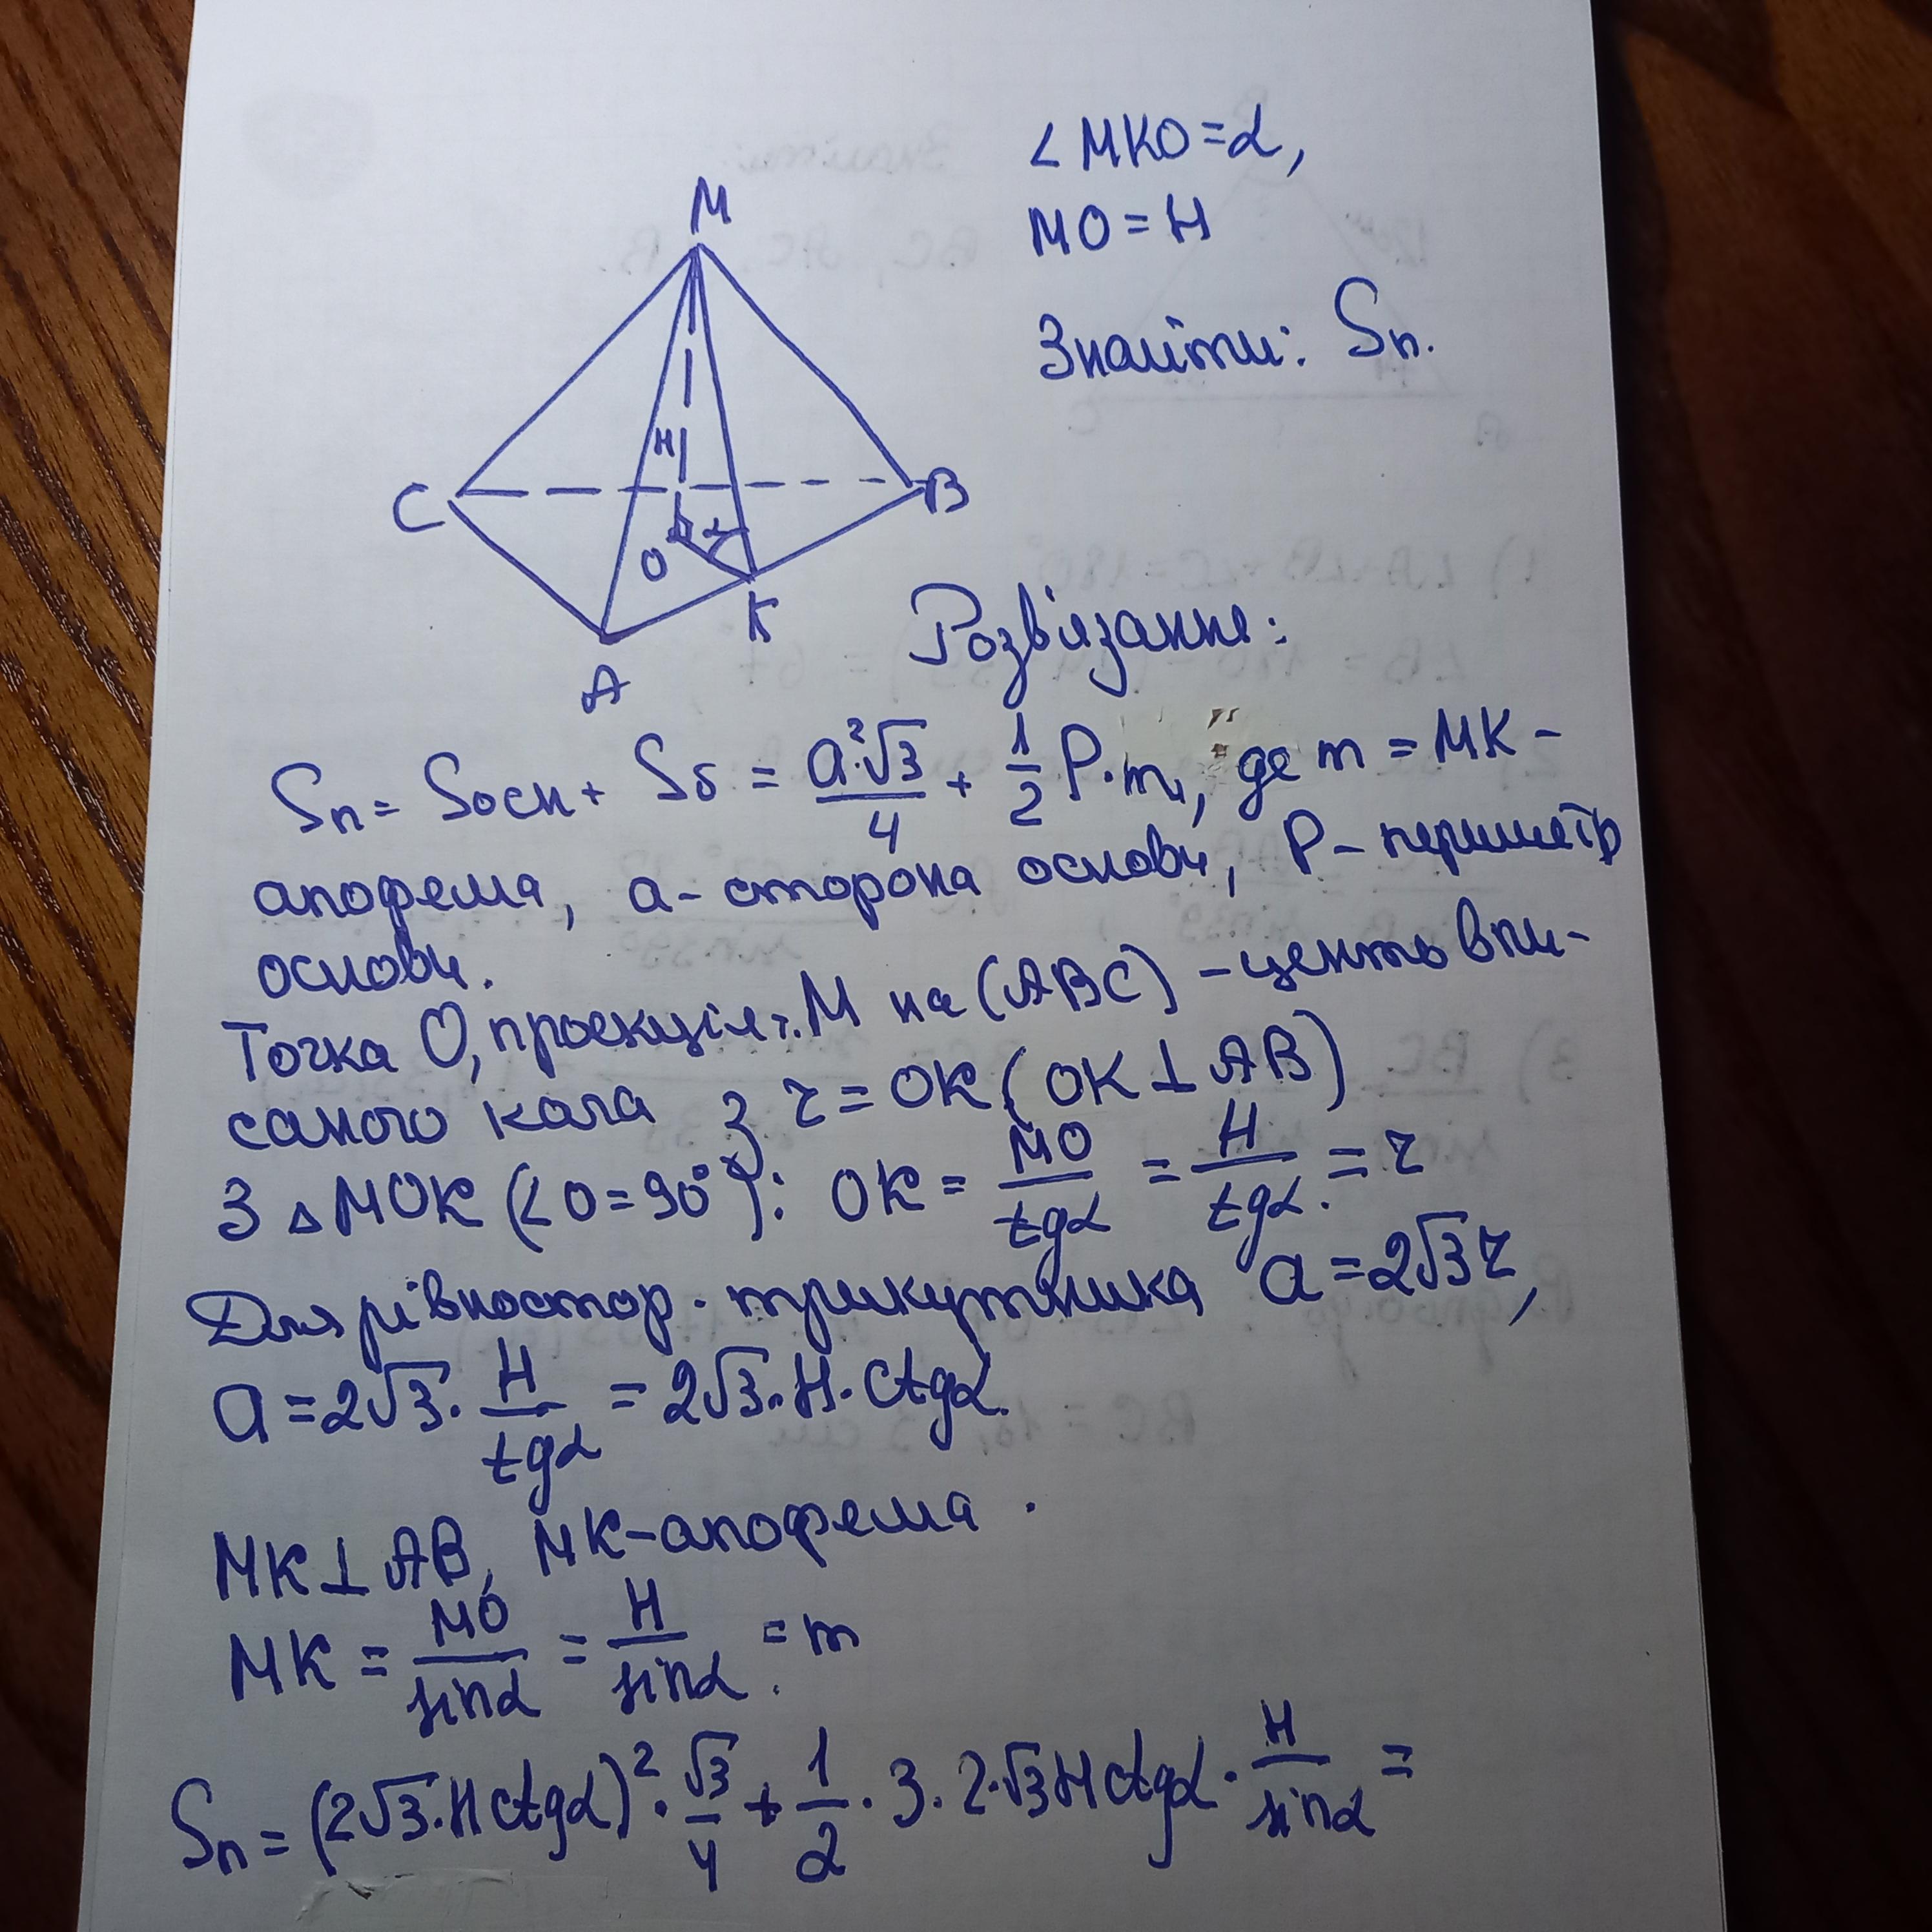 ∠MKO=α,
MO=H
Знайти: Sп.
M
H
C
B
α
O
K
A
Розв'язання:
Sп= Sосн+ Sб = a²·√3/4 + 1/2 P·m, де m = MK –
апофема, a- сторона основи, P– периметр
основи.
Точка O, проекція т. M на (ABC) – центр впи-
саного кола з r=OK (OK⊥AB)
З △MOK (∠O=90°): OK = MO/tgα = H/tgα. = r
Для рівностор. трикутника a=2√3r,
a=2√3· H/tgα = 2√3·H·ctgα.
MK⊥AB, MK–апофема.
MK = MO/sinα = H/sinα. = m
Sп = (2√3·Hctgα)²·√3/4 + 1/2·3·2·√3Hctgα·H/sinα =